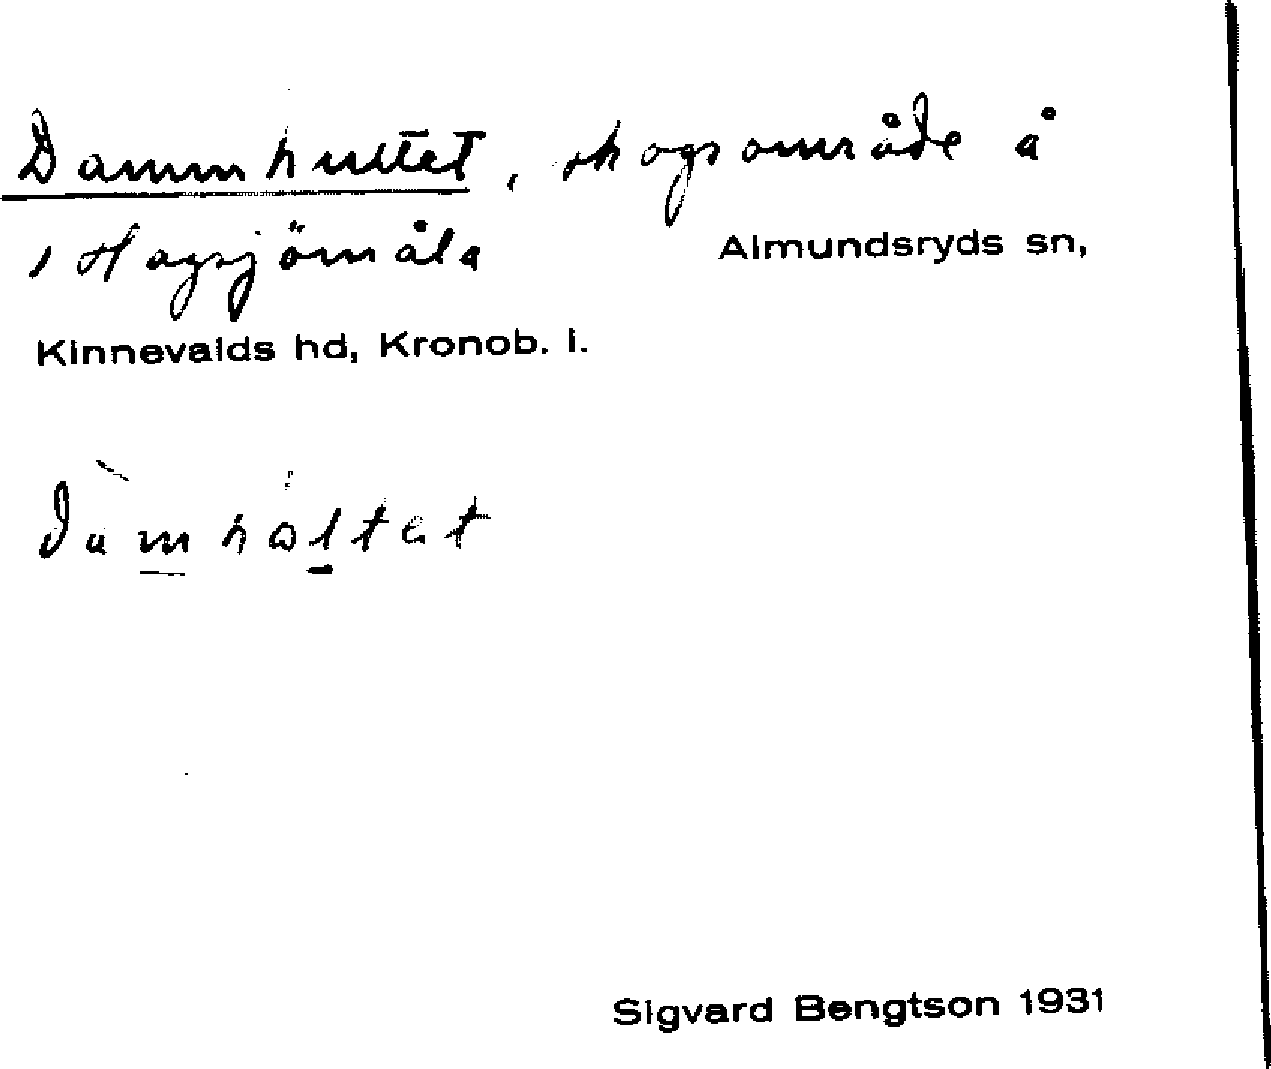 Dammhultet, skogsområde å
1 Hagsjömåla Almundsryds sn,
Kinnevalds hd, Kronob. l.
dàmhåltet
Sigvard Bengtson 1931